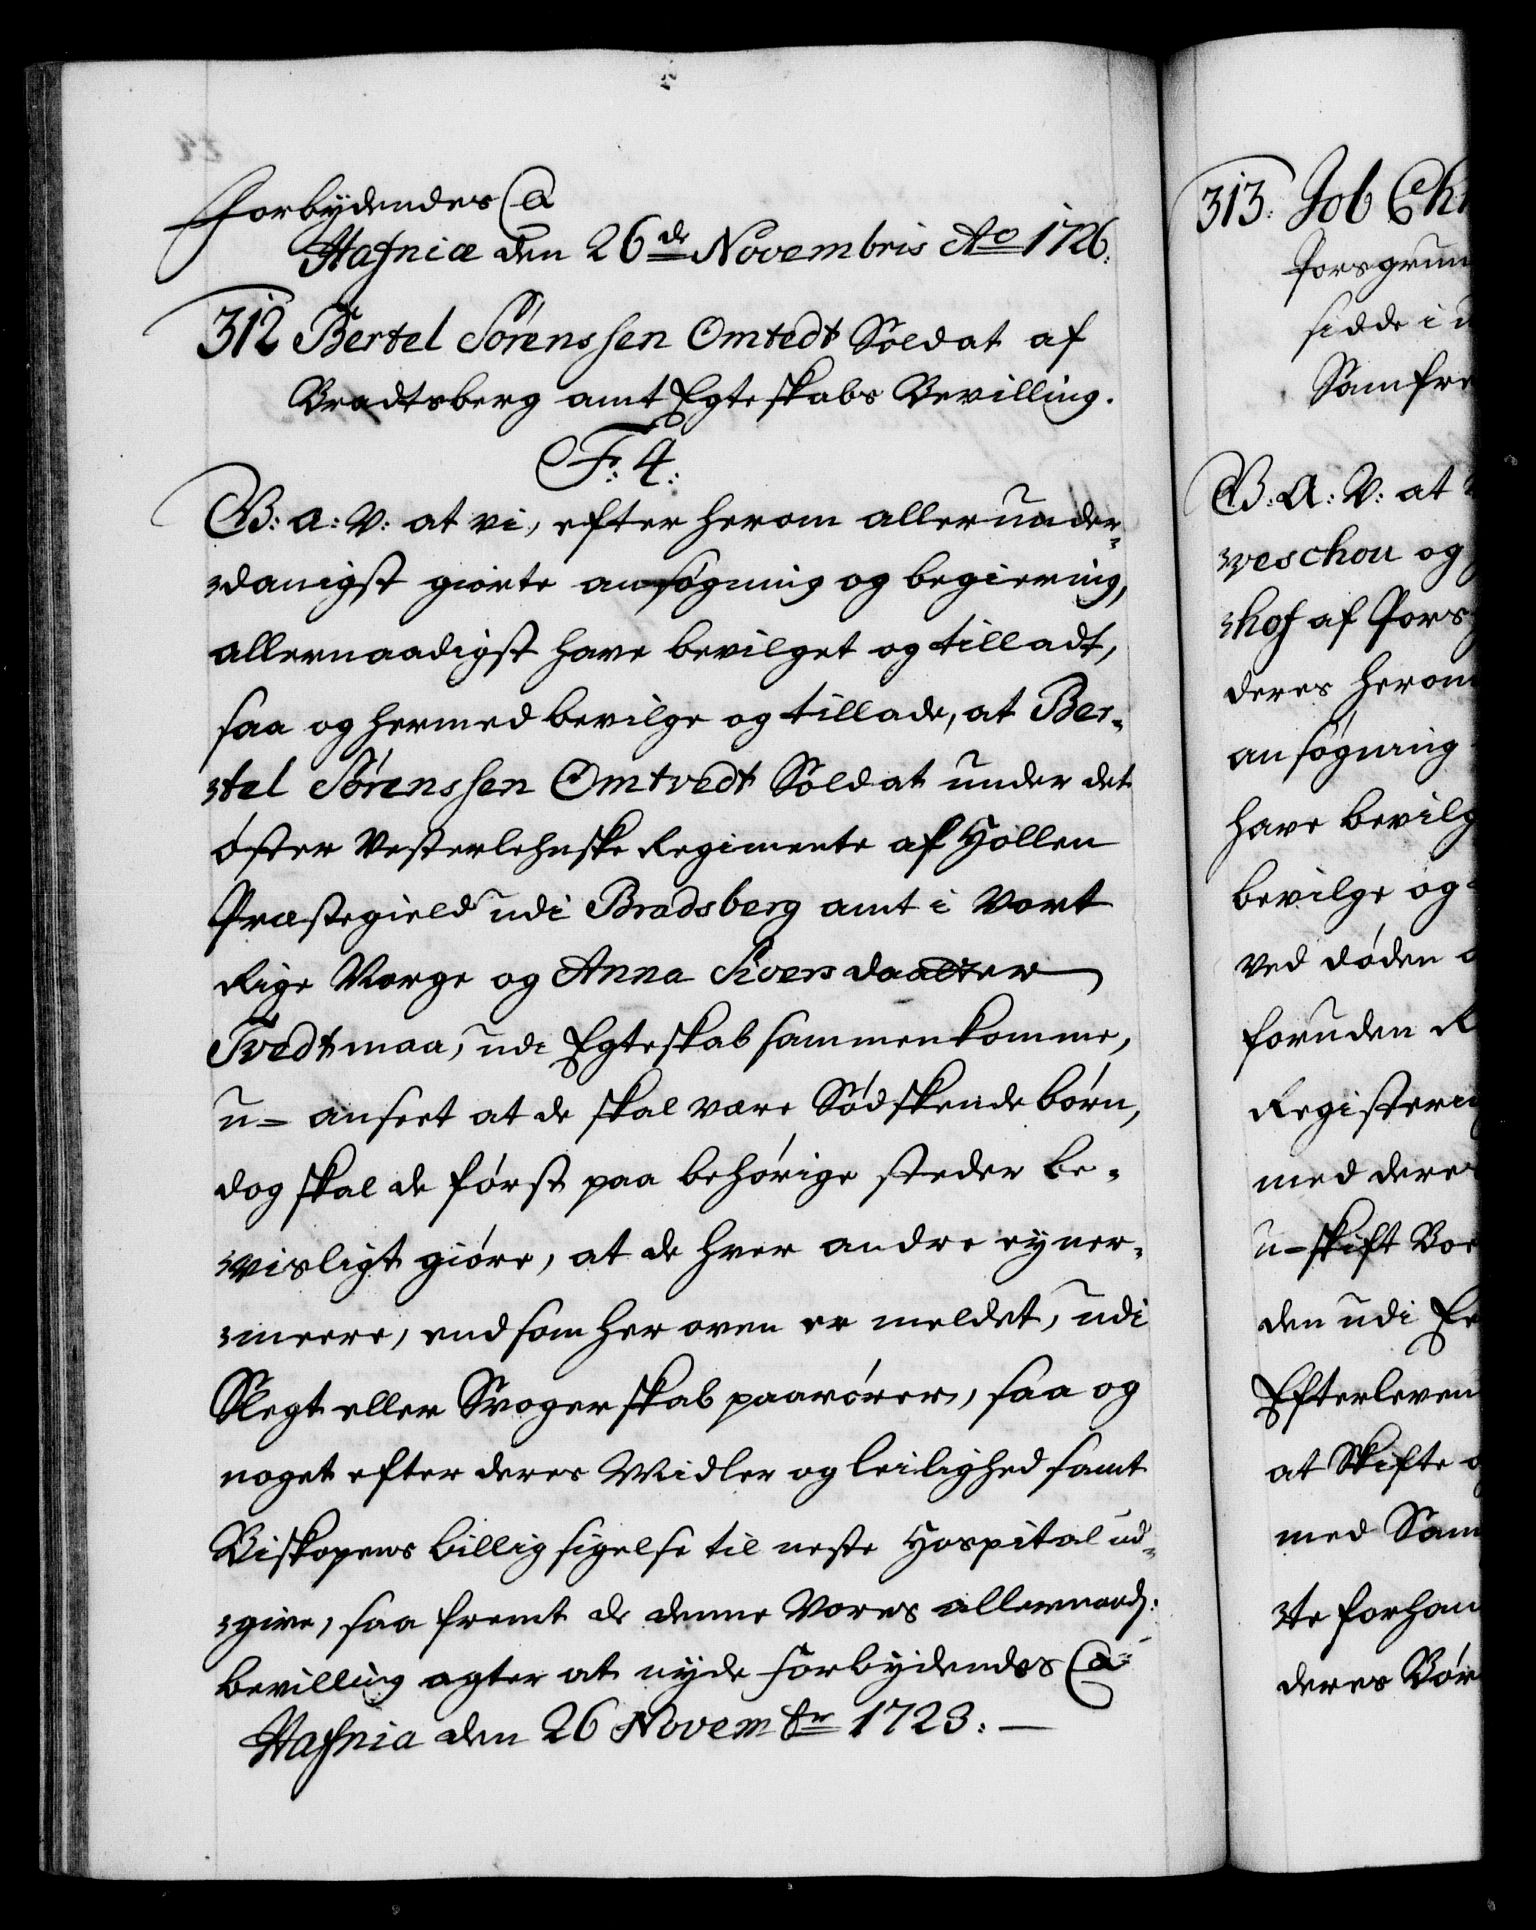 Forbydendes &
Hafniæ den 26de Novembris Ao 1726.
312 Bertel Sörenssen Omtedt Soldat af
Bradtsberg amt Egteskabs Bevilling.
F: 4:
G: a: V: at vi, efter herom allerunder-
danigst giorte ansøgning og begiering,
allernaadigst have bevilget og tilladt,
saa og hermed bevilge og tillade, at Ber-
tel Sörenssen Omtvedt Soldat under det
öster Vesterlehnske Regimente af Hollen
Præstegield udi Bradsberg amt i Vort
Rige Norge og Anna Siversdaatter
Tvedt maa, udi Egteskab sammenkomme,
u-anseet at de skal være Södskendebörn,
dog skal de först paa behörige steder be-
visligt giöre, at de hver andre ey ner-
meere, end som her oven er meldet, udi
Slegt eller Svogerskab paarörer, saa og
noget efter deres Midler og leilighed samt
Biskopens billigsigelse til neste Hospital ud-
give, saa fremt de denne Vores allernaad:
bevilling agter at nyde Forbydendes &
Hafnia den 26 Novembr 1723.
313. Job Chr
Porsgrun
sidde i u
Samfre
G: A: V: at
weschou og
hof af Pors
deres herom
ansøgning
have bevilg
bevilge og
ved döden
foruden
Registeri
med dere
u-skift Boe
den udi
Efterleven
at Skifte
med Sam
te forhan
deres Bör